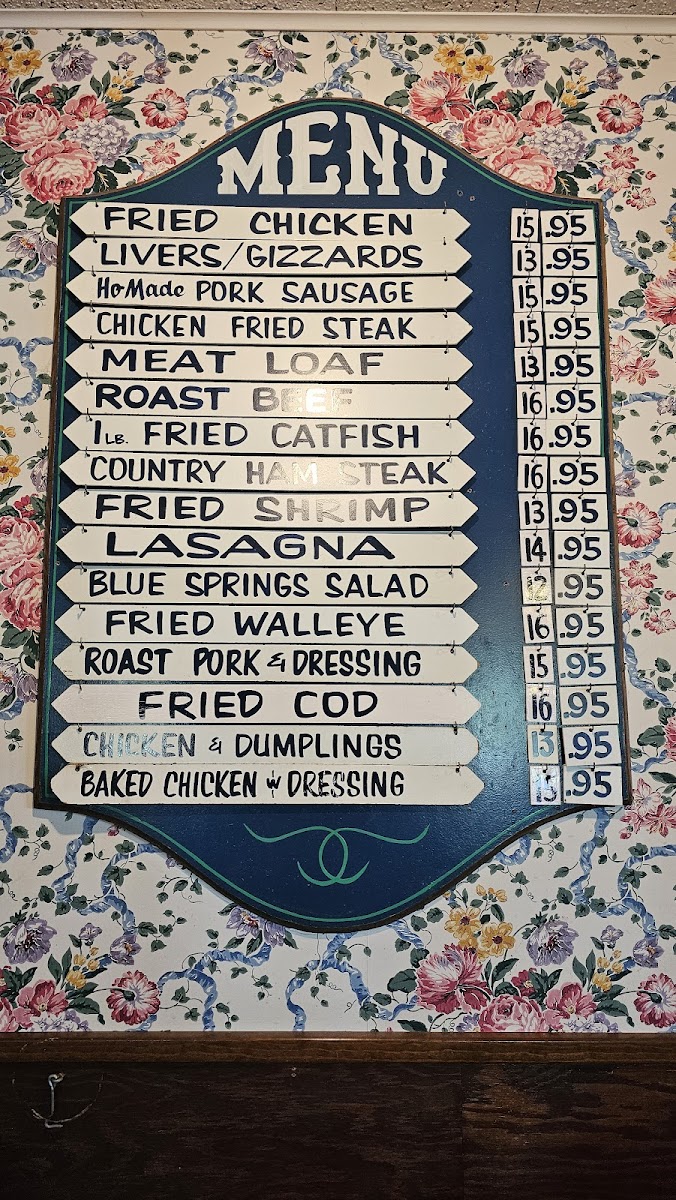 MENU
FRIED CHICKEN 15.95
LIVERS/GIZZARDS 13.95
HoMade PORK SAUSAGE 15.95
CHICKEN FRIED STEAK 15.95
MEAT LOAF 13.95
ROAST BEEF 16.95
1 LB. FRIED CATFISH 16.95
COUNTRY HAM STEAK 16.95
FRIED SHRIMP 13.95
LASAGNA 14.95
BLUE SPRINGS SALAD 12.95
FRIED WALLEYE 16.95
ROAST PORK & DRESSING 15.95
FRIED COD 16.95
CHICKEN & DUMPLINGS 13.95
BAKED CHICKEN W DRESSING .95